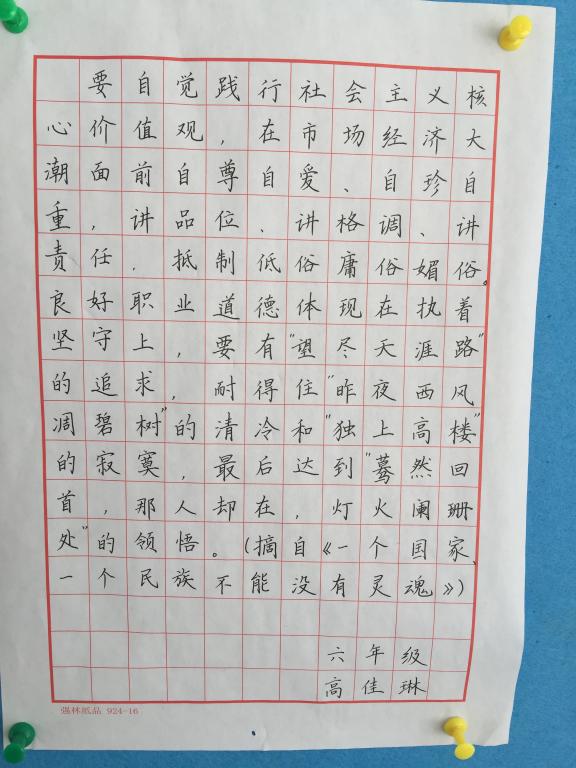 要自觉践行社会主义核
心价值观，在市场经济大
潮面前自尊自爱、自珍自
重，讲品位、讲格调、讲
责任，抵制低俗庸俗媚俗。
良好职业道德体现在执着
坚守上，要有“望尽天涯路”
的追求，耐得住“昨夜西风
凋碧树”的清冷和“独上高楼”
的寂寞，最后达到“蓦然回
首，那人却在，灯火阑珊
处”的领悟。（摘自《一个国家、
一个民族不能没有灵魂》）
六年级
高佳琳
强林纸品 924-16